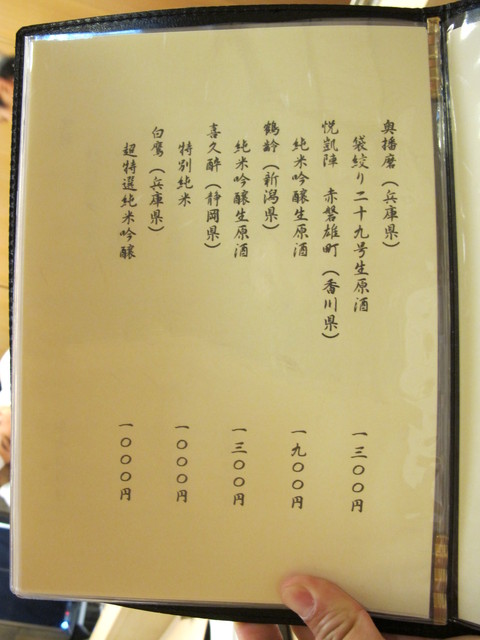 奥播磨(兵庫県)
袋絞り二十九号生原酒 一三〇〇円
悦凱陣 赤磐雄町(香川県)
純米吟醸生原酒 一九〇〇円
鶴齢(新潟県)
純米吟醸生原酒 一三〇〇円
喜久酔(静岡県)
特別純米 一〇〇〇円
白鷹(兵庫県)
超特選純米吟醸 一〇〇〇円